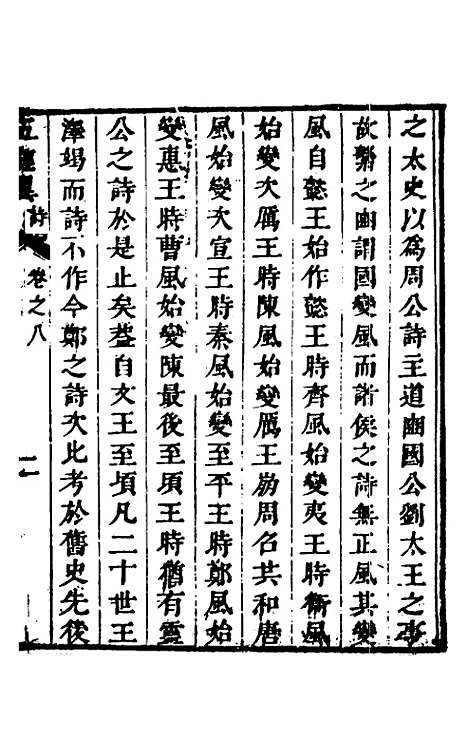 之太史以為周公詩主道豳國公劉太王之事
故繫之豳謂國變風而諸侯之詩無正風其變
風自懿王始作懿王時齊風始變夷王時衛風
始變次厲王時陳風始變厲王崩周召共和唐
風始變次宣王時秦風始變至平王時鄭風始
變惠王時曹風始變陳最後至頃王時猶有靈
公之詩於是止矣蓋自文王至頃凡二十世王
澤竭而詩不作今鄭之詩次比考於舊史先後
詩 卷之八